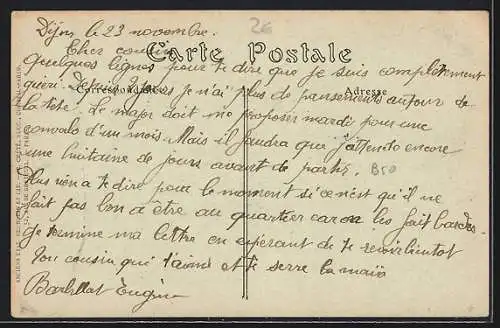 Dijon le 23 novembre.
2€
Cher cousin
Carte Postale
Quelques lignes pour te dire que je suis complètement
guéri. Depuis 2 jours je n'ai plus de pansements autour de
Correspondance
Adresse
la tête. Le major doit me proposer mardi pour une
convalo d'un mois. Mais il faudra que j'attende encore
une huitaine de jours avant de partir.
B50
Plus rien a te dire pour le moment si ce n'est qu'il ne
fait pas bon a être au quartier car on les fait barder.
Je termine ma lettre en espérant de te revoir bientot
Ton cousin qui t'aime et te serre la main
Eugène